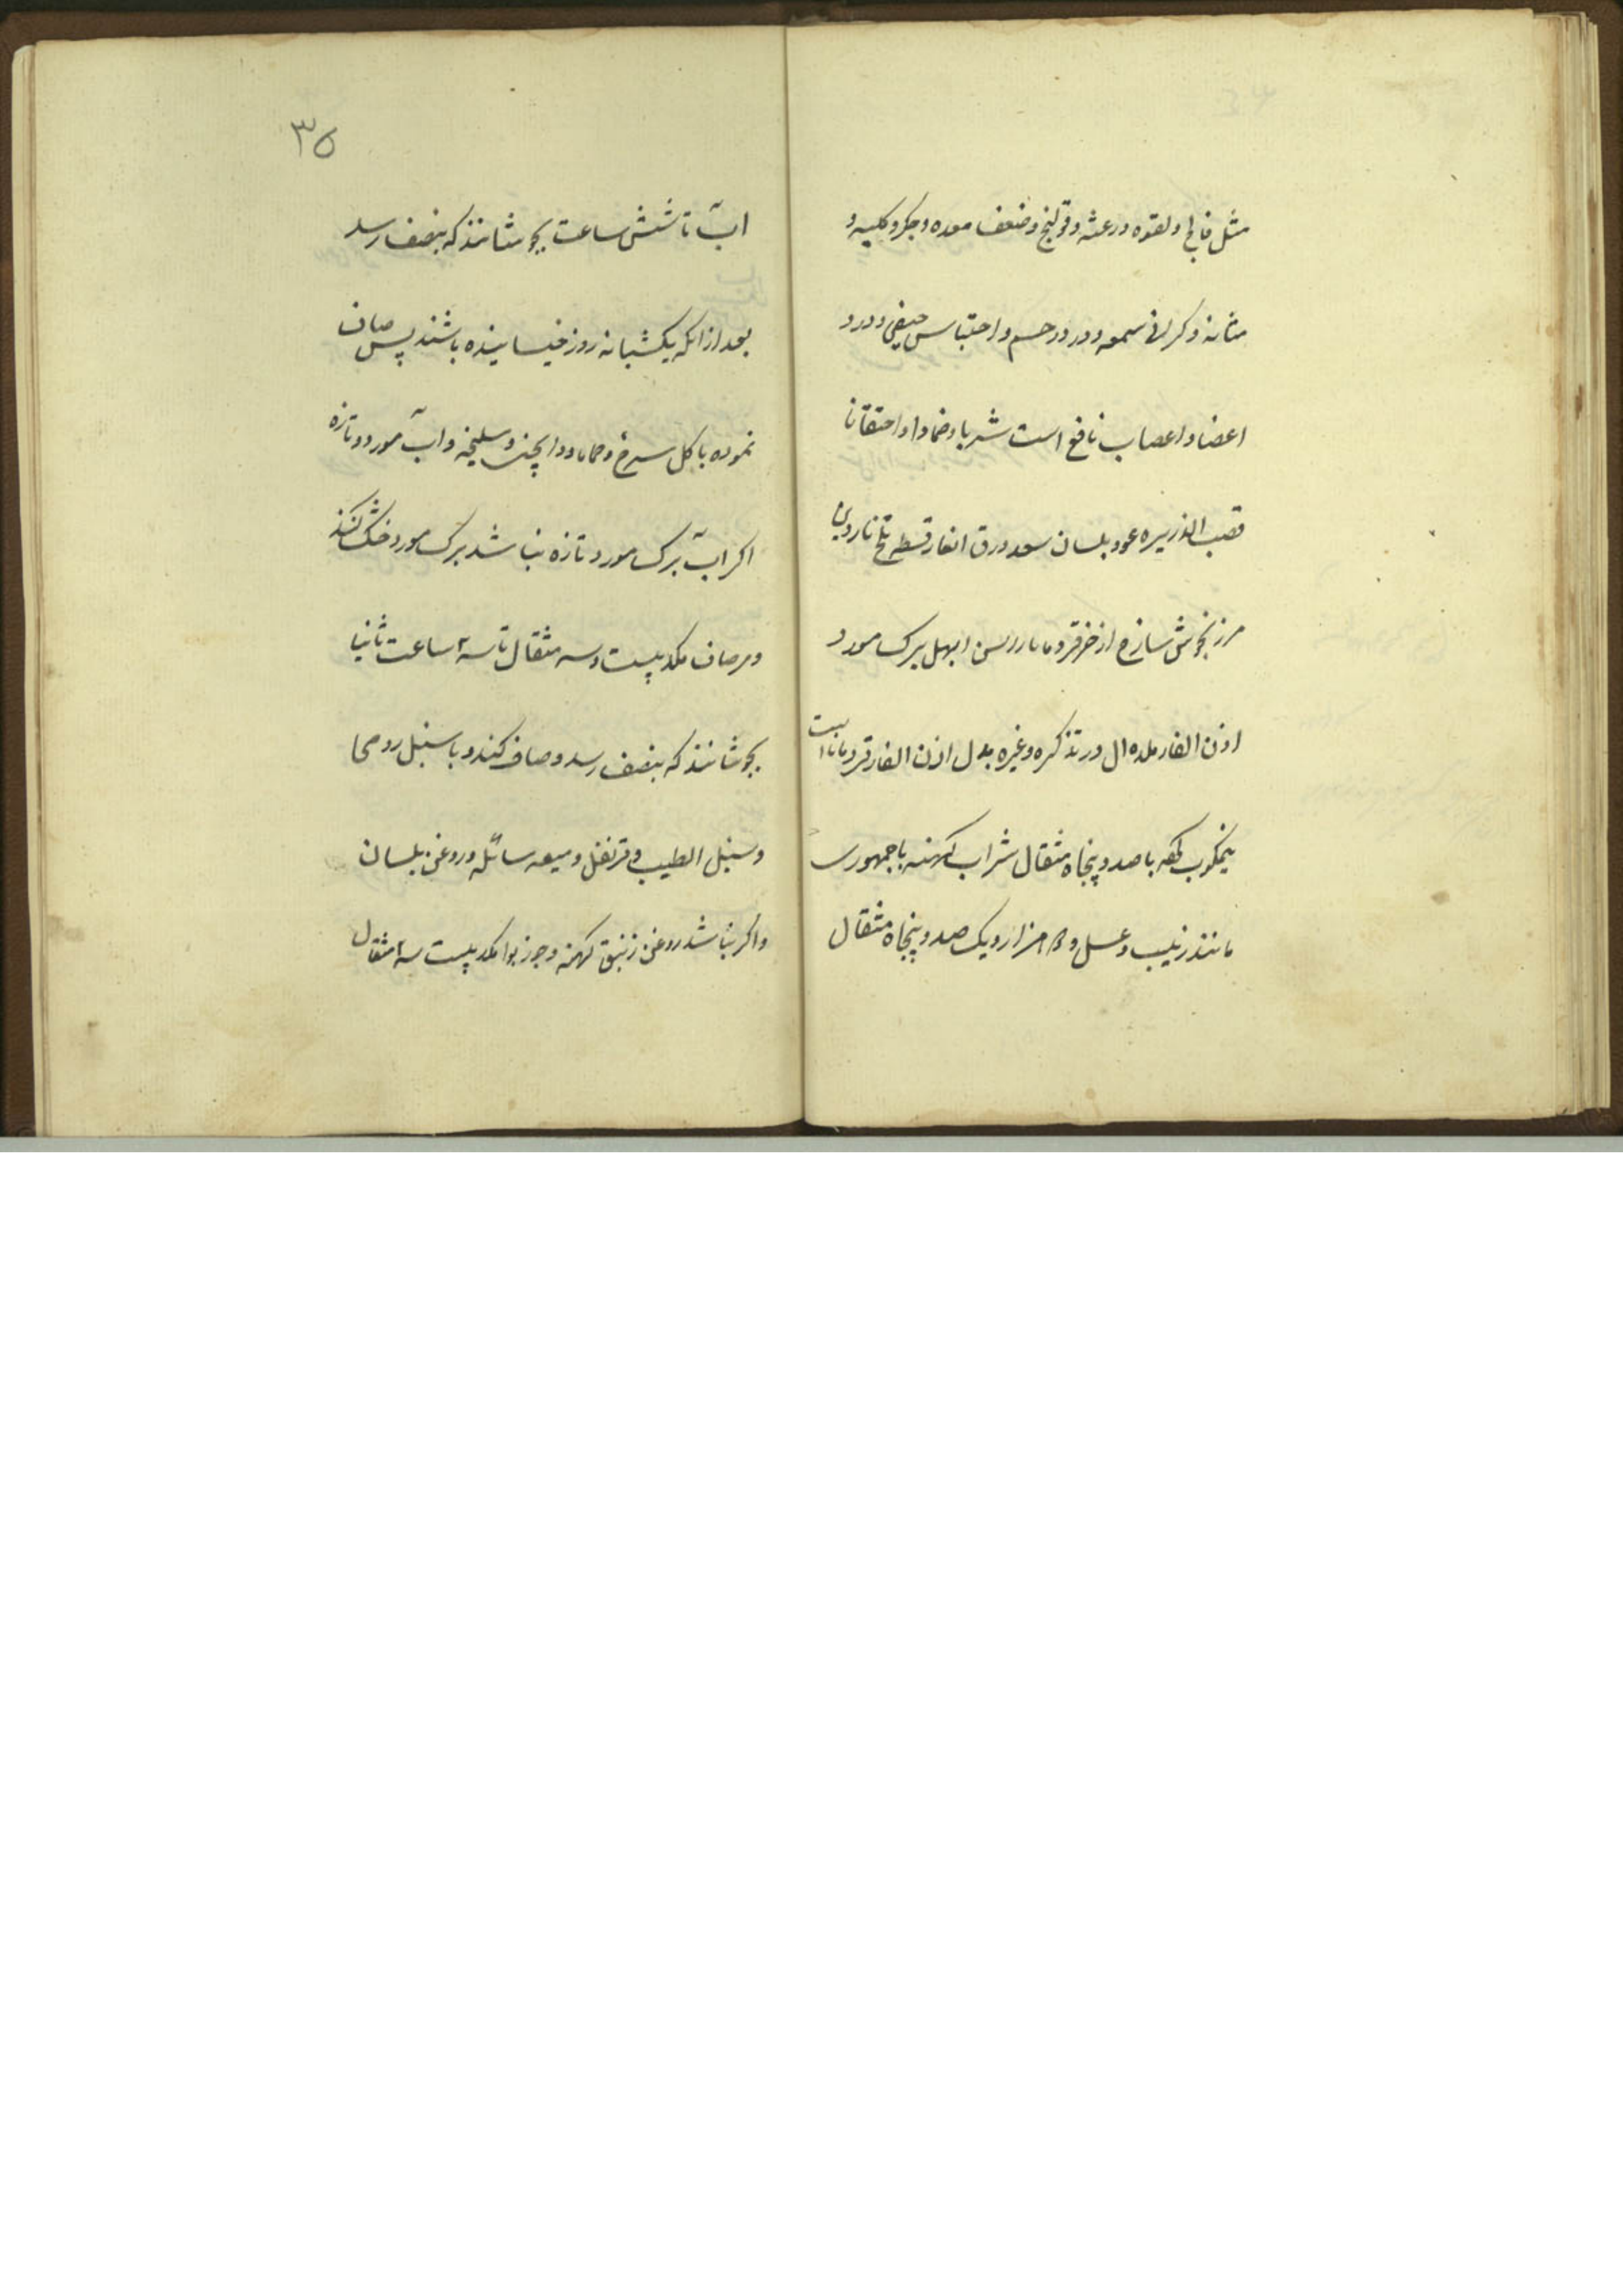 مثل فالج و لقوه و رعشه و قولنج و ضعف معده و جکر و کلیه و
مثانه و کرانی سمعه و درد رحم و احتباس حیض و درد
اعضا و اعصاب نافع است شربا و ضمادا و احتقانا
قصب الذریره عود بلسان سعد ورق الغار قسط تلخ ناردین
مرزنجوش ساذج اذخر قردمانا ابهل برک مورد
اذن الفار در تذکره و غیره بدل اذن الفار قردمانا است
نیمکوب با صد و پنجاه مثقال شراب کهنه یا جمهوری
مانند زبیب و عسل و هزار و یک صد و پنجاه مثقال
۳۵
اب تا شش ساعت بجوشانند که بنصف رسد
بعد از انکه یکشبانه روز خیسانیده باشند پس صاف
نموده با کل سرخ و حماما و دارچینی و سلیخه و اب مورد تازه
اکر اب برک مورد تازه نباشد برک مورد خشک کنند
و مصاف بیست و سه مثقال تا سه ساعت ثانیا
بجوشانند که بنصف رسد و صاف کنند و با سنبل رومی
و سنبل الطیب و قرنفل و میعه سائله و روغن بلسان
و اکر نباشد روغن زنبق کهنه و جوز بوا بیست سه مثقال